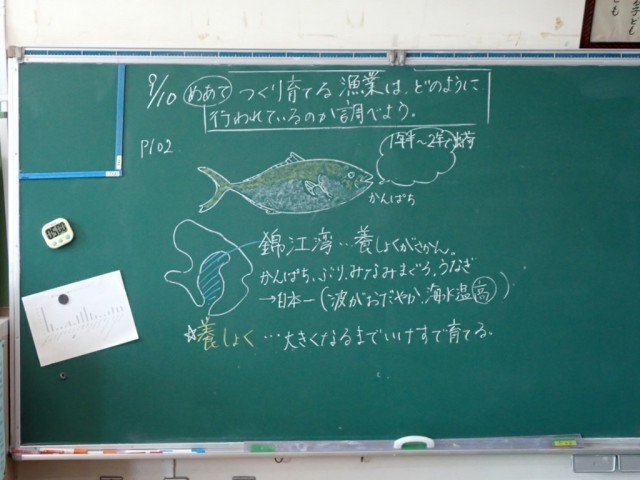 9/10 めあて つくり育てる漁業は、どのように
行われているのか調べよう。
P102
1年半〜2年で出荷
かんぱち
錦江湾‥養しょくがさかん。
かんぱち、ぶり、みなみまぐろ、うなぎ
→日本一(波がおだやか、海水温高)
☆養しょく…大きくなるまでいけすで育てる。